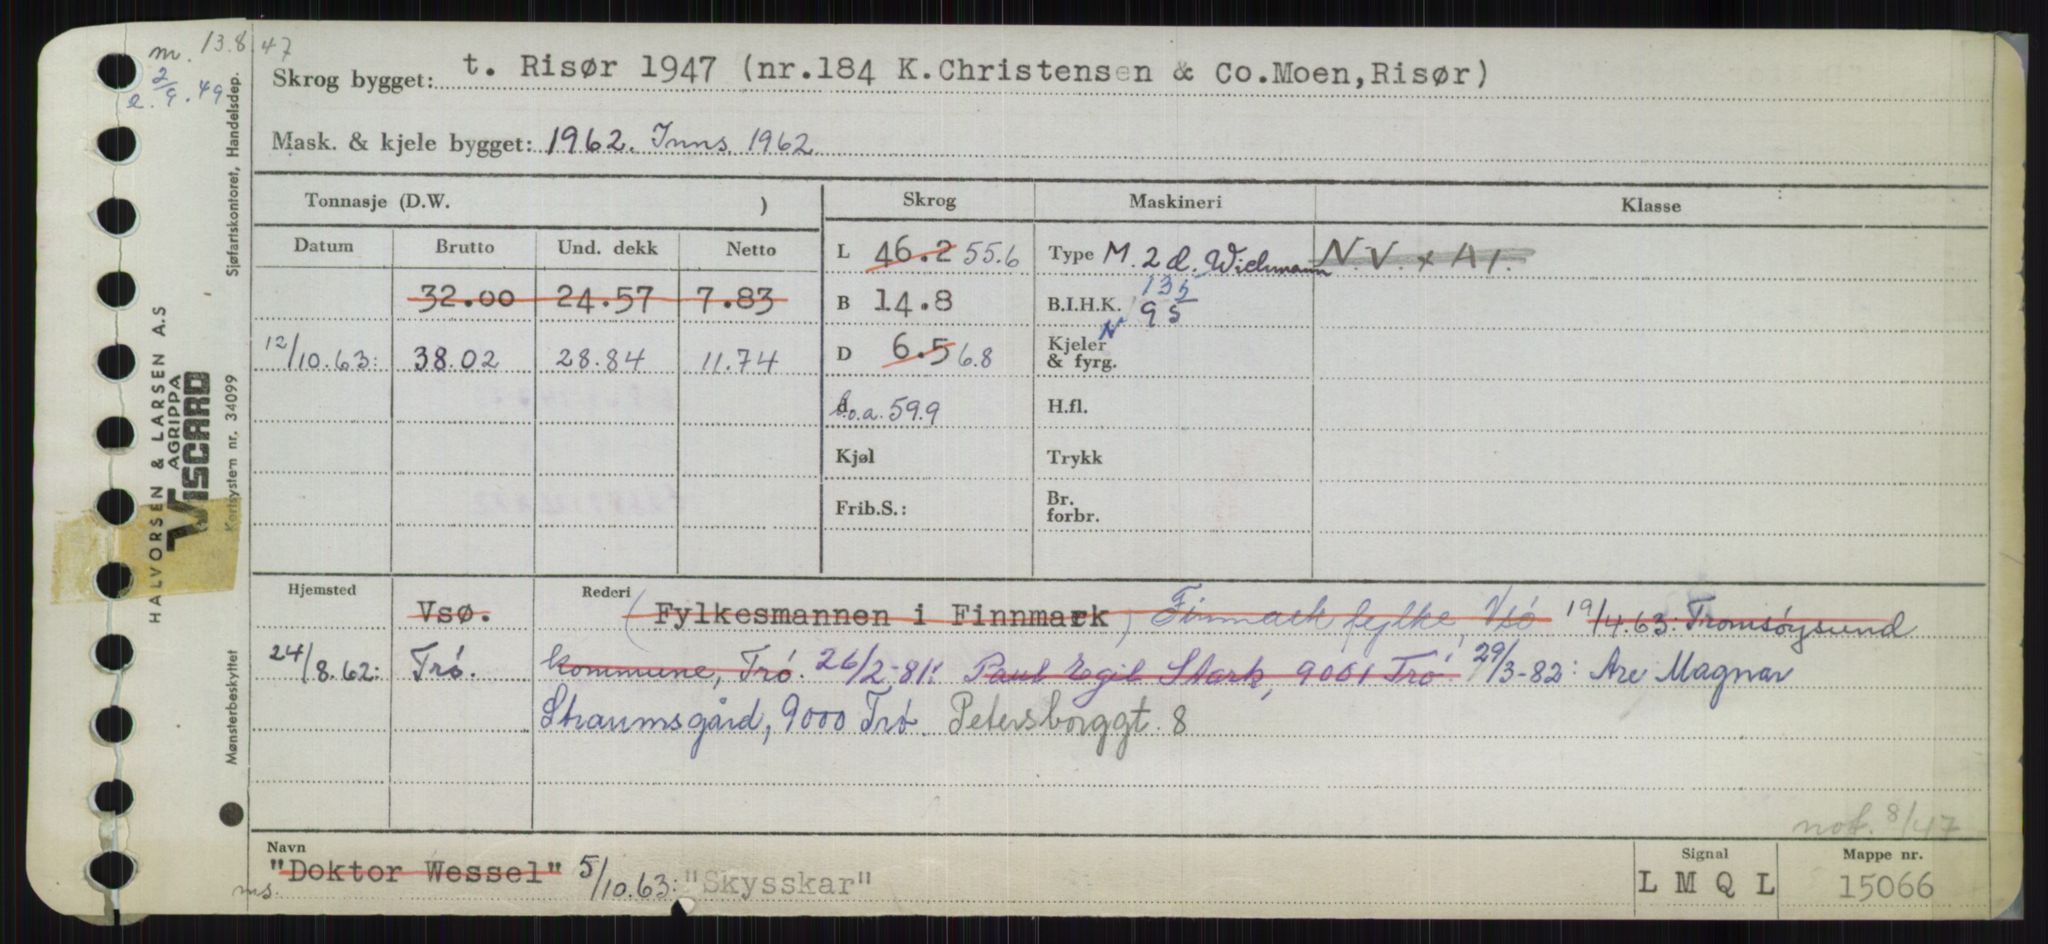 m. 13.8.47
2/9.49
Skrog bygget: t. Risør 1947 (nr.184 K.Christensen & Co.Moen,Risør)
Mask. & kjele bygget: 1962. Inns. 1962
Tonnasje (D.W. ) Skrog Maskineri Klasse
Datum Brutto Und. dekk Netto
L 46.2 55.6 Type M. 2 d. Wichmann N.V. + A1.
32.00 24.57 7.83 B 14.8 B.I.H.K. 135
N 95
12/10.63: 38.02 28.84 11.74 D 6.5 6.8 Kjeler & fyrg.
l.o.a. 59.9 H.fl.
Kjøl Trykk
Frib.S.: Br. forbr.
Hjemsted Rederi
Vsø. (Fylkesmannen i Finnmark) Finnmark fylke, Vsø 19/4.63: Tromsøysund
24/8.62: Trø. kommune, Trø. 26/2-81: Paul Egil Stark, 9001 Trø. 29/3-82: Are Magnar
Straumsgård, 9000 Trø. Petersborggt. 8
not. 8/47
Navn Signal Mappe nr.
ms. "Doktor Wessel" 5/10.63: "Skysskar" L M Q L 15066
Sjøfartskontoret, Handelsdep.
HALVORSEN & LARSEN A.S
AGRIPPA
VISCARD
Kortsystem nr. 34099
Mønsterbeskyttet